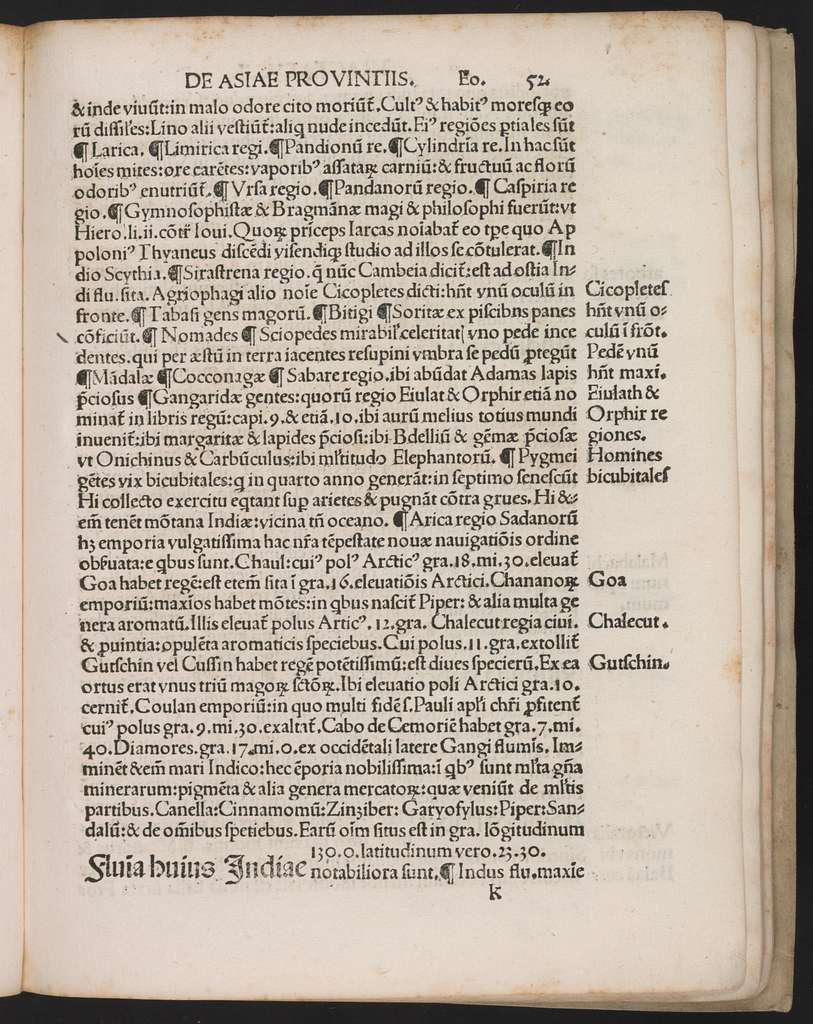 DE ASIAE PROVINTIIS. Fo. 52.
& inde viuũt:in malo odore cito moriũt̃.Cultꝰ & habitꝰ moresqȝ eo
rũ dissiles:Lino alii vestiũt̃:aliq nude incedũt.Eiꝰ regiões ꝑtiales sũt
¶ Larica. ¶Limirica regi.¶Pandionũ re.¶Cylindria re.In hac sũt
hoĩes mites:ore carẽtes:vaporibꝰ assataꝝ carniũ:& fructuũ ac florũ
odoribꝰ enutriũt̃.¶ Vrsa regio.¶Pandanorũ regio.¶ Caspiria re
gio.¶Gymnosophistæ & Bragmãnæ magi & philosophi fuerũt:vt
Hiero.li.ii.cõtr̃ Ioui.Quoꝝ prĩceps Iarcas noĩabat̃ eo tꝑe quo Ap
poloniꝰ Thyaneus discẽdi visendiqȝ studio ad illos se cõtulerat.¶In
dio Scythia.¶Sirastrena regio.q̃ nũc Cambeia dicit̃:est ad ostia In⸗
di flu.sita.Agriophagi alio noĩe Cicopletes dicti:hñt vnũ oculũ in
fronte.¶ Tabasi gens magorũ.¶Bitigi ¶Soritæ ex piscibns panes
cõficiũt.¶ Nomades ¶ Sciopedes mirabil' celeritat̃ vno pede ince
dentes.qui per æstũ in terra iacentes resupini vmbra se pedũ ꝓtegũt
¶Mãdalæ ¶Cocconagæ ¶ Sabare regio.ibi abũdat Adamas lapis
p̃ciosus ¶Gangaridæ gentes:quorũ regio Eiulat & Orphir etiã no
minat̃ in libris regũ:capi.9.& etiã.10.ibi aurũ melius totius mundi
inuenit̃:ibi margaritæ & lapides p̃ciosi:ibi Bdelliũ & gẽmæ p̃ciosæ
vt Onichinus & Carbũculus:ibi ml̃titudo Elephantorũ. ¶ Pygmei
gẽtes vix bicubitales:q in quarto anno generãt:in septimo senescũt
Hi collecto exercitu eqtant suꝑ arietes & pugnãt cõtra grues. Hi &⸗
em̃ tenẽt mõtana Indiæ:vicina tñ oceano. ¶Arica regio Sadanorũ
hȝ emporia vulgatissima hac nr̃a tẽpestate nouæ nauigatiõis ordine
obsꝰuata:e qbus sunt.Chaul:cuiꝰ polꝰ Arcticꝰ gra.18.mi.30.eleuat̃
Goa habet regẽ:est etem̃ sita ĩ gra.16.eleuatiõis Arctici.Chananoꝝ
emporiũ:maxĩos habet mõtes:in qbus nascit̃ Piper: & alia multa ge
nera aromatũ.Illis eleuat̃ polus Articꝰ.12.gra. Chalecut regia ciui.
& ꝓuintia:opulẽta aromaticis speciebus.Cui polus.11.gra.extollit̃
Gutschin vel Cussin habet regẽ potẽtissimũ:est diues specierũ.Ex ea
ortus erat vnus triũ magoꝝ sctõꝝ.Ibi eleuatio poli Arctici gra.10.
cernit̃.Coulan emporiũ:in quo multi fidẽ s.Pauli apl'i chr̃i ꝓfitent̃
cuiꝰ polus gra.9.mi.30.exaltat̃.Cabo de Cemoriẽ habet gra.7.mi.
40.Diamores.gra.17.mi.0.ex occidẽtali latere Gangi flumis. Im⸗
minẽt &em̃ mari Indico:hec ẽporia nobilissima:ĩ qbꝰ sunt ml̃ta gña
minerarum:pigmẽta & alia genera mercatoꝝ:quæ veniũt de ml̃tis
partibus.Canella:Cinnamomũ:Zinziber:Garyofylus:Piper:San⸗
dalũ:& de om̃ibus spetiebus.Earũ oĩm situs est in gra. lõgitudinum
130.0.latitudinum vero.23.30.
Fluĩa huius Indiae notabiliora sunt.¶ Indus flu.maxĩe
k
Cicopletes
hñt vnũ o⸗
culũ ĩ frõt.
Pedẽ vnũ
hñt maxi.
Eiulath &
Orphir re
giones.
Homines
bicubitales
Goa
Chalecut.
Gutschin.